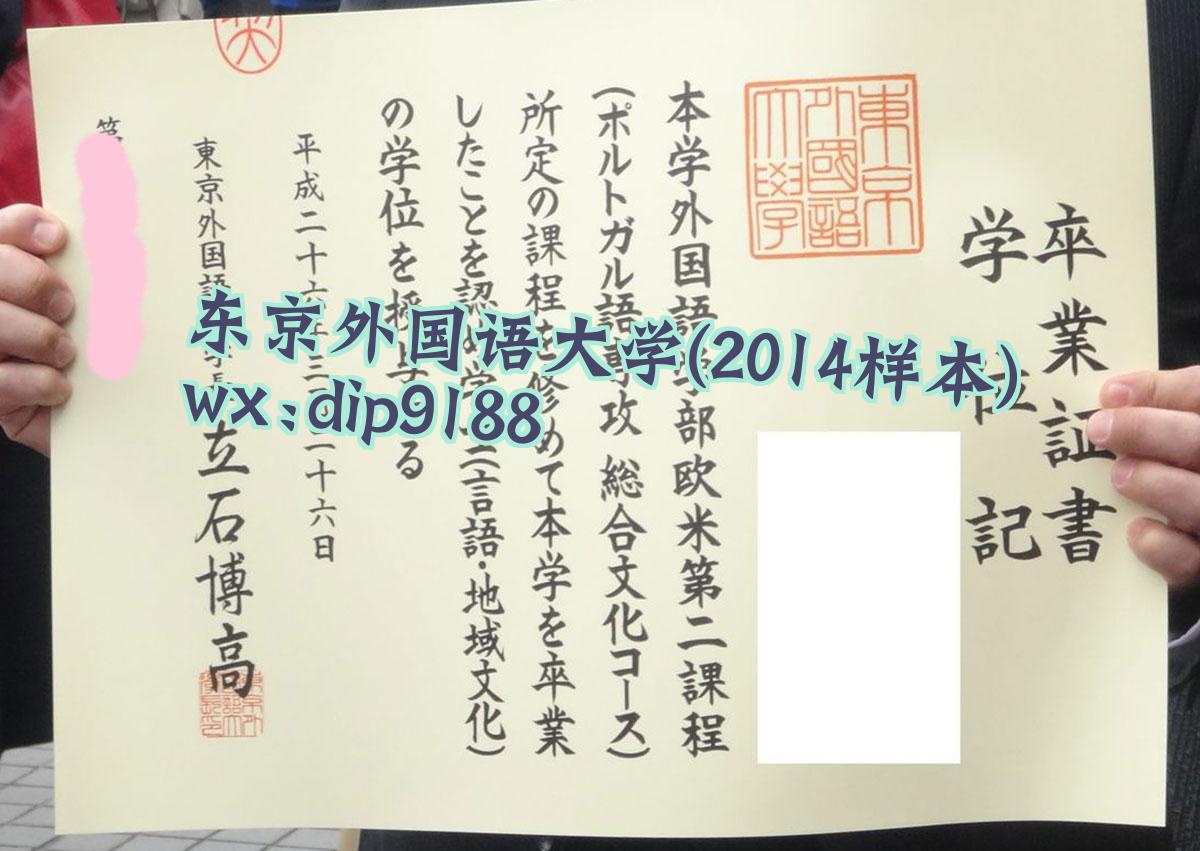 卒業証書
学位記
東京外國語大學
本学外国語学部欧米第二課程
(ポルトガル語専攻 総合文化コース)
所定の課程を修めて本学を卒業
したことを認め学士(言語・地域文化)
の学位を授与する
平成二十六年三月二十六日
東京外国語大学長 立石博高
第
东京外国语大学(2014样本)
wx:dip9188